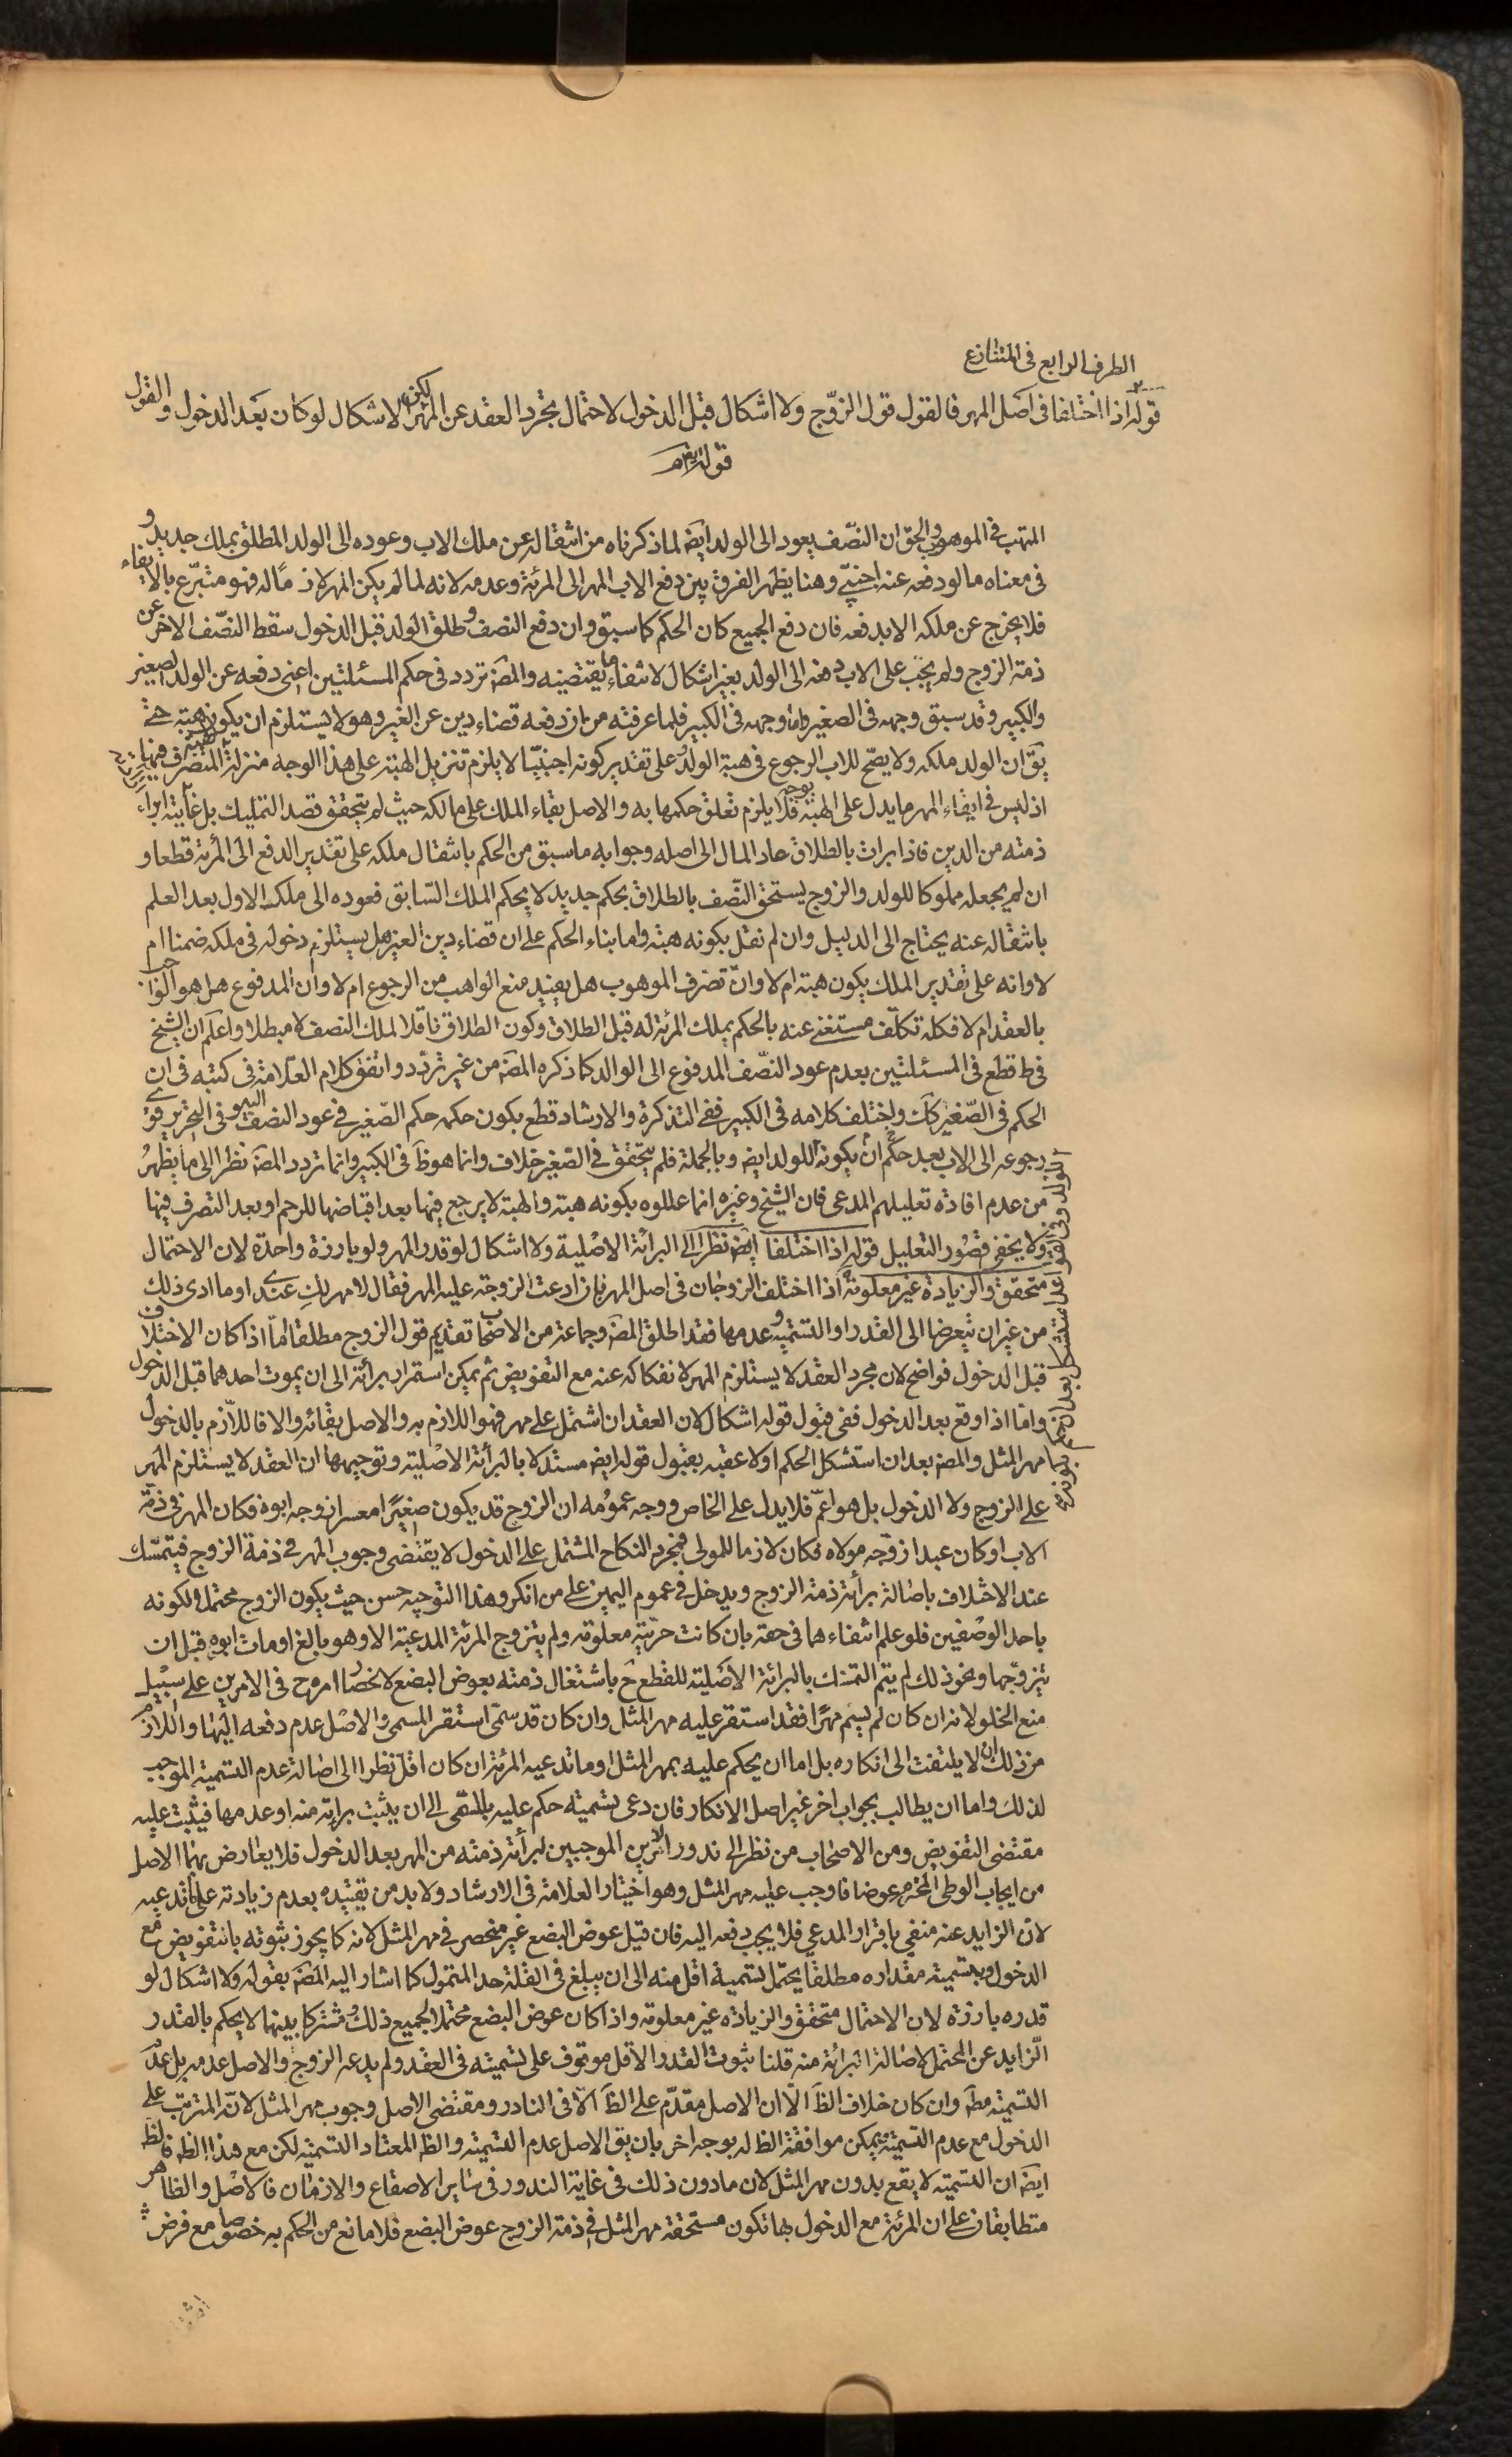 الطرف الرابع فى المتنازع
قوله اذا اختلفا فى اصل المهر فالقول قول الزوّج ولا اشكال قبل الدخول لاحتمال تجرد العقد عن المهر لكن الاشكال لو كان بعد الدخول والقول
قوله ايضا
المتهب فى الموهوب والحق ان النصّف يعود الى الولد ايضَ لما ذكرناه من انتقاله عن ملك الاب وعوده الى الولد المطلق بملك جديد و
فى معناه ما لو دفعه عنه اجنبىّ وهنا يظهر الفرق بين دفع الاب المهر الى المرئة وعدمه لانه لما لم يكن المهر لازمًا له فهو متبرّع بالايفاء
فلا يخرج عن ملكه الا بدفعه فان دفع الجميع كان الحكم كما سبق وان دفع النصف وطلق الولد قبل الدخول سقط النصّف الاخر عن
ذمة الزوج ولم يجب على الاب دفعه الى الولد بغير اشكال لانتفاء ما يقتضيه والمصَ تردد فى حكم المسئلتين اعنى دفعه عن الولد الصغير
والكبير وقد سبق وجهه فى الصغير واما وجهه فى الكبير فلما عرفته من ان دفعه قضاء دين عن الغير وهو لا يستلزم ان يكون هبته حتے
يقَ ان الولد ملكه ولا يصحّ للاب الرجوع فى هبة الولد وعلى تقدير كونه اجنبيّا لا يلزم تنزيل الهبة على هذا الوجه منزلة المتصرف فيها
اذ ليس فى ايفاء المهر ما يدل على الهبة بوجه فلا يلزم تعلق حكمها به والاصل بقاء الملك على مالكه حيث لم يتحقق قصد التمليك بل غايته ابراء
ذمته من الدين فاذا برات بالطلاق عاد المال الى اصله وجوابه ما سبق من الحكم بانتقال ملكه على تقدير الدفع الى المرئة قطعا و
ان لم يجعله مملوكا للولد والزوج يستحق النصّف بالطلاق بحكم جديد لا بحكم الملك السّابق فعوده الى ملكه الاول بعد العلم
بانتقاله عنه يحتاج الى الدليل وان لم نقل بكونه هبة واما بناء الحكم على ان قضاء دين الغير هل يستلزم دخوله فى ملكه ضمنا ام
لا وانه على تقدير الملك يكون هبته ام لا وانّ تصّرف الموهوب هل يفيد منع الواهب من الرجوع ام لا وان المدفوع هل هو الواجب
بالعقد ام لا فكله تكلّف مستغنے عنه بالحكم بملك المرئة له قبل الطلاق وكون الطلاق ناقلا لملك النصف لا مبطلا واعلم ان الشيخ
فى ط قطع فى المسئلتين بعدم عود النصّف المدفوع الى الوالد كما ذكره المصَ من غير تردّد واتفق كلام العلّامة فى كتبه فى ان
الحكم فى الصّغير كك واختلف كلامه فى الكبير ففى التذكرة والارشاد قطع بكون حكمه حكم الصّغير فے عود النصف اليه وفى التحرير قوّے
رجوعه الى الاب بعد حكم ان يكونه للولد ايضَ وبالجملة فلم يتحقق فے الصّغير خلاف وانما هو ظَ فى الكبير وانما تردد المصَ نظرا الى ما يظهر
من عدم افادة تعليلهم المدعى فان الشيخ وغيره انما عللوه بكونه هبته والهبة لا يرجع فيها بعد اقباضها للرحم او بعد التصرف فيها
ولا يخفى قصُور التعليل قوله اذا اختلفا ايضَ نظرا الى البرائة الاصْلية ولا اشكال لو قدر المهر ولو بارزة واحدة لان الاحتمال
متحقق والزيادة غير معلومة اذا اختلف الزوجان فى اصل المهر بان ادعت الزوجة عليه المهر فقال لا مهر لكِ عندے او ما ادى ذلك
من غير ان يتعرضا الى القدر او التسمية وعدمها فقد اطلق المصَ وجماعة من الاصحاب تقديم قول الزوج مطلقا امّا اذا كان الاختلاف
قبل الدخول فواضح لان مجرد العقد لا يستلزم المهر لانفكاكه عنه مع التفويض ثم يمكن استمرار برائته الى ان يموت احدهما قبل الدخول
واما اذا وقع بعد الدخول ففى قبول قوله اشكال لان العقد ان اشتمل على مهر فهو اللازم به والاصل بقائه والا فاللازم بالدخول
مهر المثل والمصَ بعد ان استشكل الحكم اولا عقبه بقبول قوله ايضَ مستدلا بالبرأئة الاصْلية وتوجيهها ان العقد لا يستلزم المهر
على الزوج ولا الدخول بل هو اعّم فلا يدل على الخاص ووجه عمومُه ان الزوج قد يكون صغيرًا معسرا زوجه ابوه فكان المهر فى ذمّة
الاب او كان عبدا زوّجه مولاه فكان لازما للمولى فمجرد النكاح المشتمل على الدخول لا يقتضى وجوب المهر فے ذمة الزوج فيتمسّك
عند الاختلاف باصالة برأئة ذمة الزوج ويدخل فے عموم اليمين على من انكر وهذا التوجيه حسن حيث يكون الزوج محتملا لكونه
باحد الوصْفين فلو علم انتفاءهما فى حقه بان كانت حريّته معلومة ولم يتزوج المرئة المدعية الا وهو بالغ او مات ابوه قبل ان
يتزوّجها ونحو ذلك لم يتم التمسّك بالبرائة الاصْلية للقطع حَ باشتغال ذمته بعوض البضع لانحصار امره حَ فى الامرين على سبيل
منع الخلو لانه ان كان لم يسم مهرًا فقد استقر عليه مهر المثل وان كان قد سمّى استقر المسمى والاصْل عدم دفعه اليها واللازم
من ذلك ان لا يلتفت الى انكاره بل اما ان يحكم عليه بمهر المثل او ما تدعيه المرئة ان كان اقلّ نظرا الى اصالة عدم التسمية الموجب
لذلك واما ان يطالب بجواب اخر غير اصل الانكار فان دعى تسمية حكم عليه بالمسّمى الى ان يثبت برائته منه او عدمها فيثبت عليه
مقتضى التفويض ومن الاصحاب من نظر الى ندور الامرين الموجبين لبرأئة ذمته من المهر بعد الدخول فلا يعارض بهما الاصل
من ايجاب الوطى المحرم عوضا فاوجب عليه مهر المثل وهو اختيار العلامة فى الارشاد ولا بد من تقييده بعدم زيادته على ما تدعيه
لان الزايد عنه منفى باقرار المدعي فلا يجب دفعه اليه فان قيل عوض البضع غير منحصر فے مهر المثل لانه كما يجوز ثبوته بالتفويض مع
الدخول وبتسمية مقداره مطلقا يحتمل تسمية اقل منه الى ان يبلغ فى القلة حد المتمول كما اشار اليه المصَ بقوله ولا اشكال لو
قدره بارزة لان الاحتمال متحقق والزيادة غير معلومة واذا كان عوض البضع محتملا لجميع ذلك مشتركا بينها لا يحكم بالقدر
الزّايد عن المحتمل لاصَالة البرائة منه قلنا ثبوت القدر الاقل موقوف على تسميته فى العقد ولم يدعه الزوج والاصل عدمه بل عدم
التسمية مطَ وان كان خلاف الظَ الّا ان الاصل مقدّم على الظَ الّا فى النادر ومقتضى الاصل وجوب مهر المثل لانّه المترتب على
الدخول مع عدم التسمية ويمكن موافقة الظَ له بوجه اخر بان يقَ الاصل عدم التسمية والظَ المعتاد التسمية لكن مع هذا الظَ فالظَ
ايضَ ان التسمية لا يقع بدون مهر المثل لان ما دون ذلك فى غاية الندور فى ساير الاصقاع والازمان فالاصْل والظاهر
متطابقان على ان المرئة مع الدخول بها تكون مستحقة مهر المثل فى ذمة الزوج عوض البضع فلا مانع من الحكم به خصوصا مع فرض